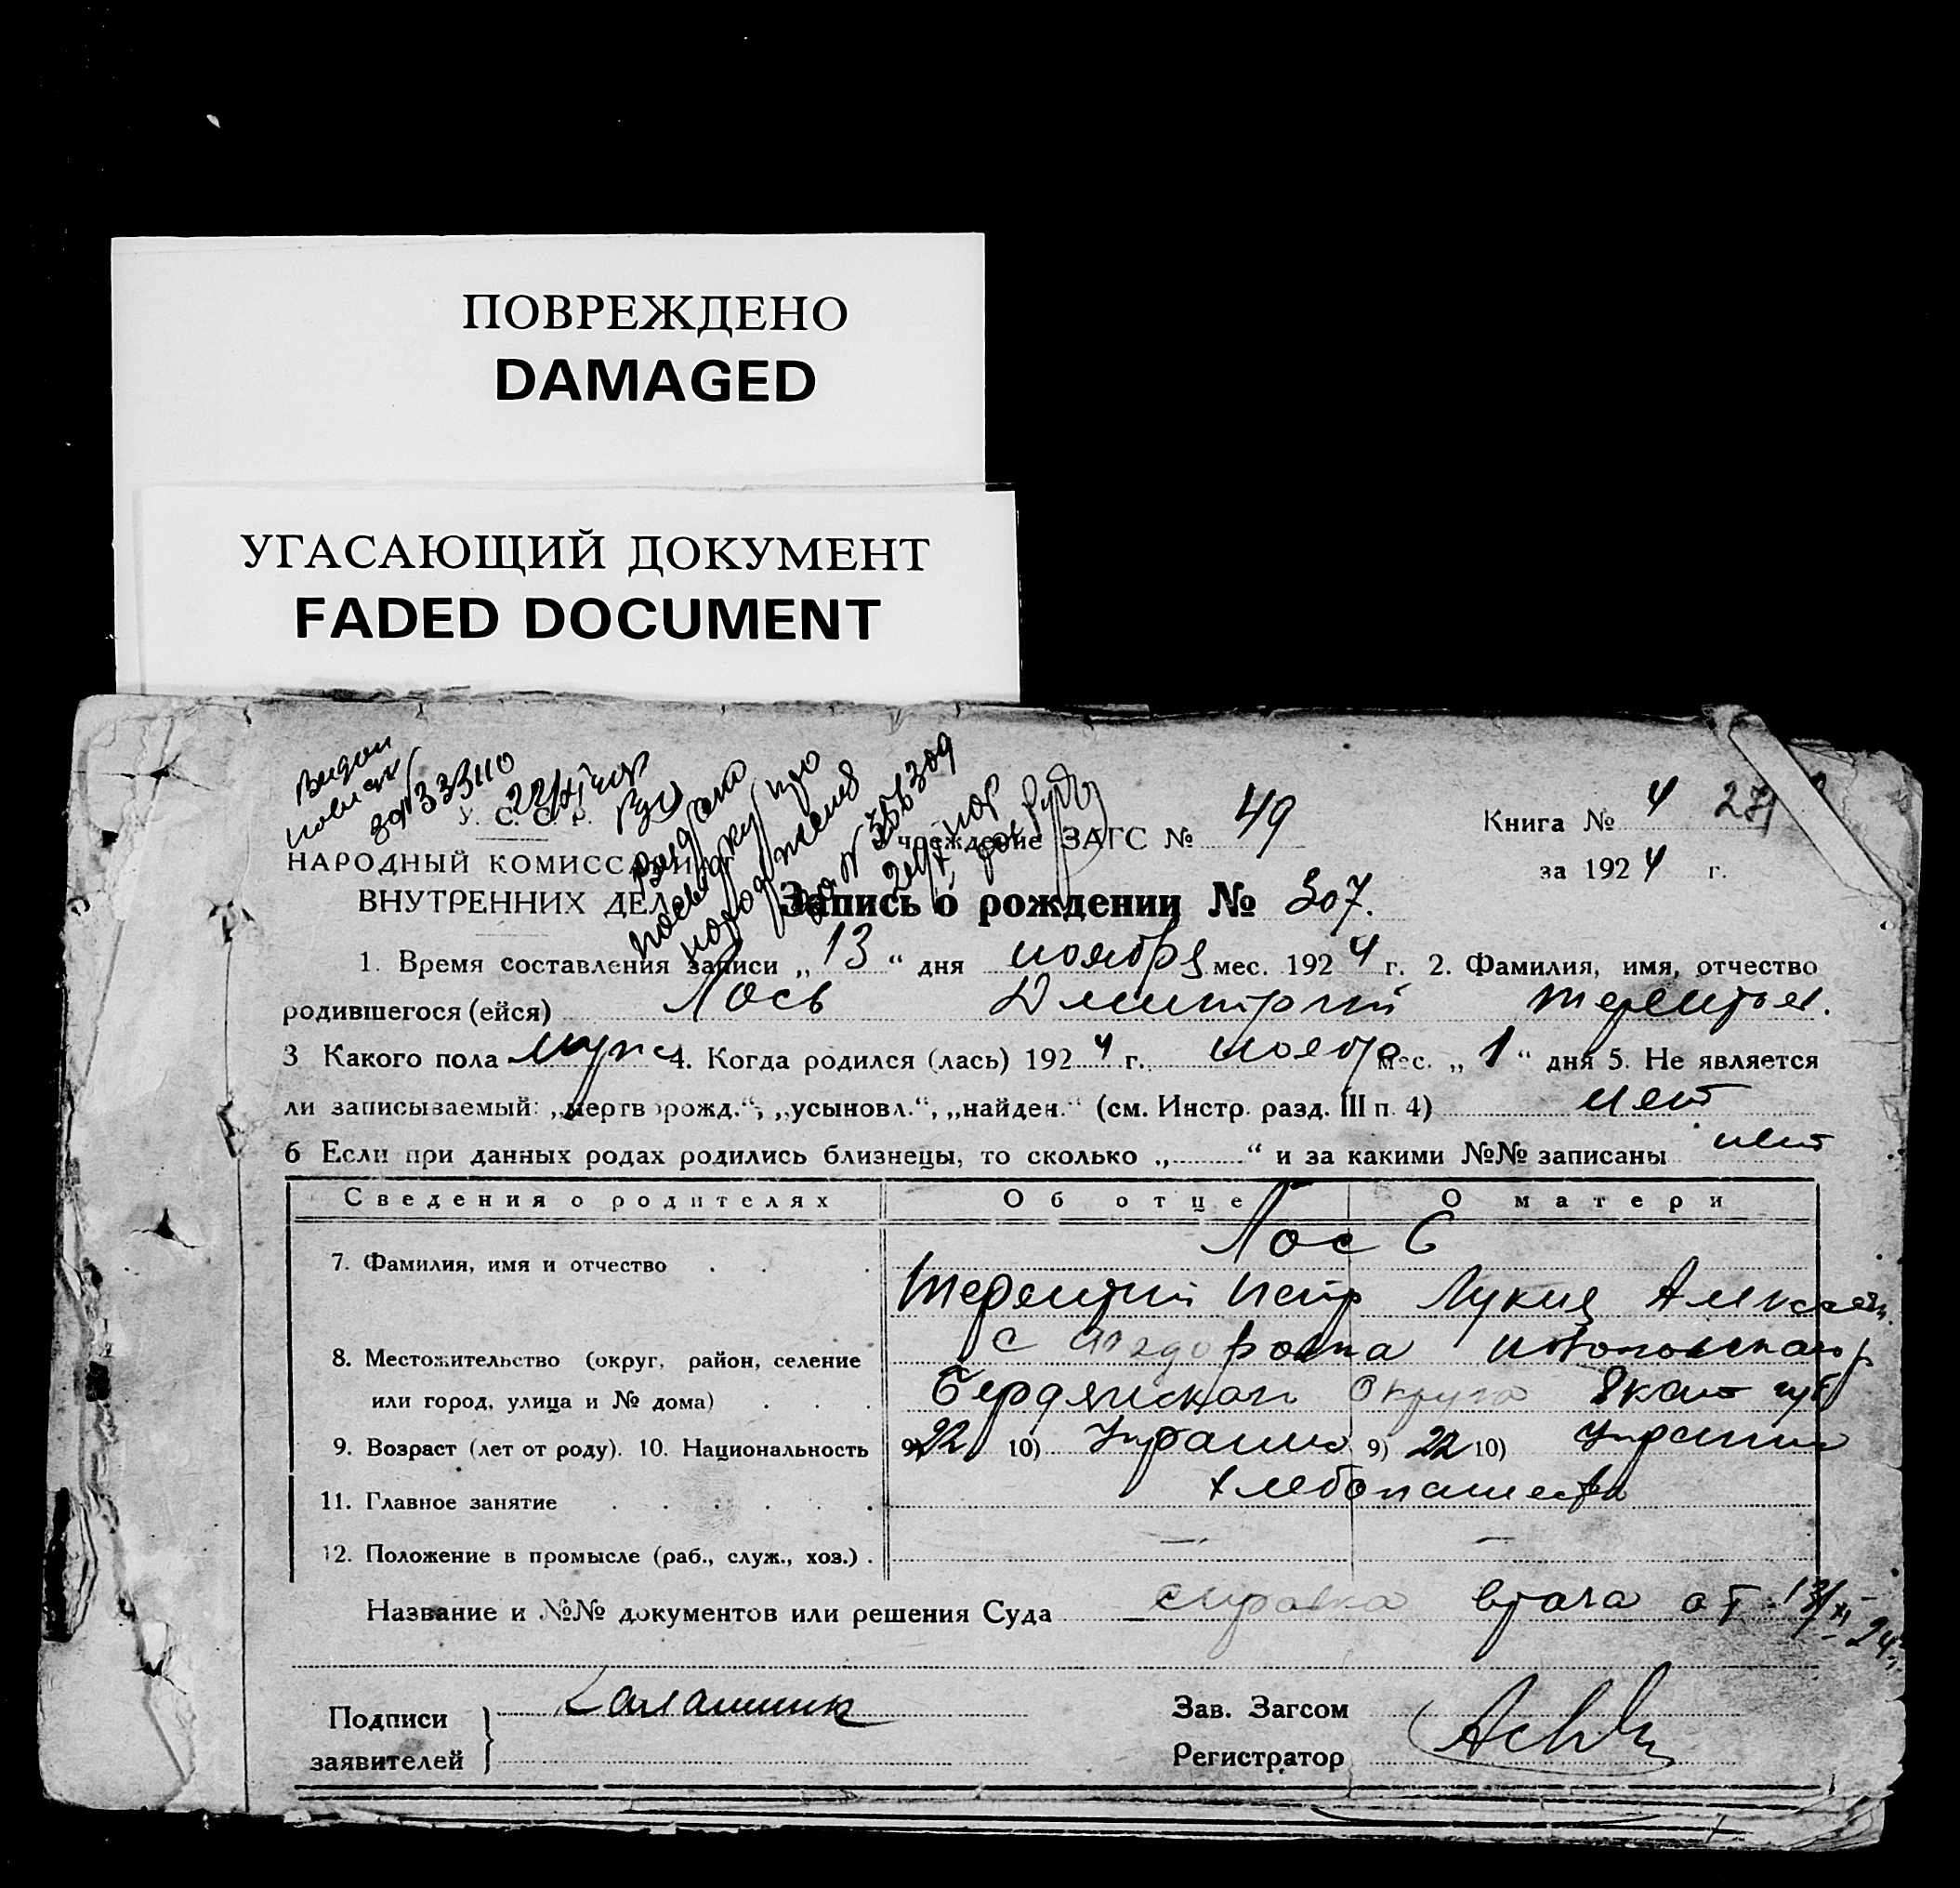 ПОВРЕЖДЕНО
DAMAGED
УГАСАЮЩИЙ ДОКУМЕНТ
FADED DOCUMENT
У. С. С. Р.
НАРОДНЫЙ КОМИСС
ВНУТРЕННИХ ДЕЛ
чреждение ЗАГС № 49
Книга № 4 271
за 1924 г.
Запись о рождении № 307.
1. Время составления записи „13“ дня ноября мес. 1924 г. 2. Фамилия, имя, отчество
родившегося (ейся) Лось Дмитрий Терентьев.
3 Какого пола мужс 4. Когда родился (лась) 1924 г. ноябр мес. „1“ дня 5. Не является
ли записываемый: „мертворожд.“, „усыновл.“, „найден.“ (см. Инстр. разд. III п. 4) нет
6 Если при данных родах родились близнецы, то сколько „..........“ и за какими №№ записаны нет
Сведения о родителях Об отце О матери
Лось
7. Фамилия, имя и отчество
Терентий Петр Лукия Алексеев.
8. Местожительство (округ, район, селение с
или город, улица и № дома) Бердянского Округа Екат губ
9. Возраст (лет от роду). 10. Национальность 9) 22 10) Украин 9) 22 10) Украин
11. Главное занятие хлебопашество
12. Положение в промысле (раб., служ., хоз.) . — —
Название и №№ документов или решения Суда справка врача от 13/XI-24
Подписи Калашник Зав. Загсом
заявителей Регистратор